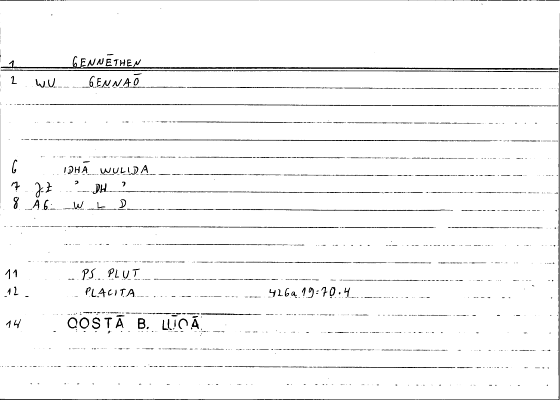 1 GENNĒTHEN
2 WU GENNAŌ
6 IDHĀ WULIDA
7 JZ ' DH '
8 AG W L D
11 PS PLUT
12 PLACITA 426a 19=70.4
14 QOSṬĀ B. LŪQĀ